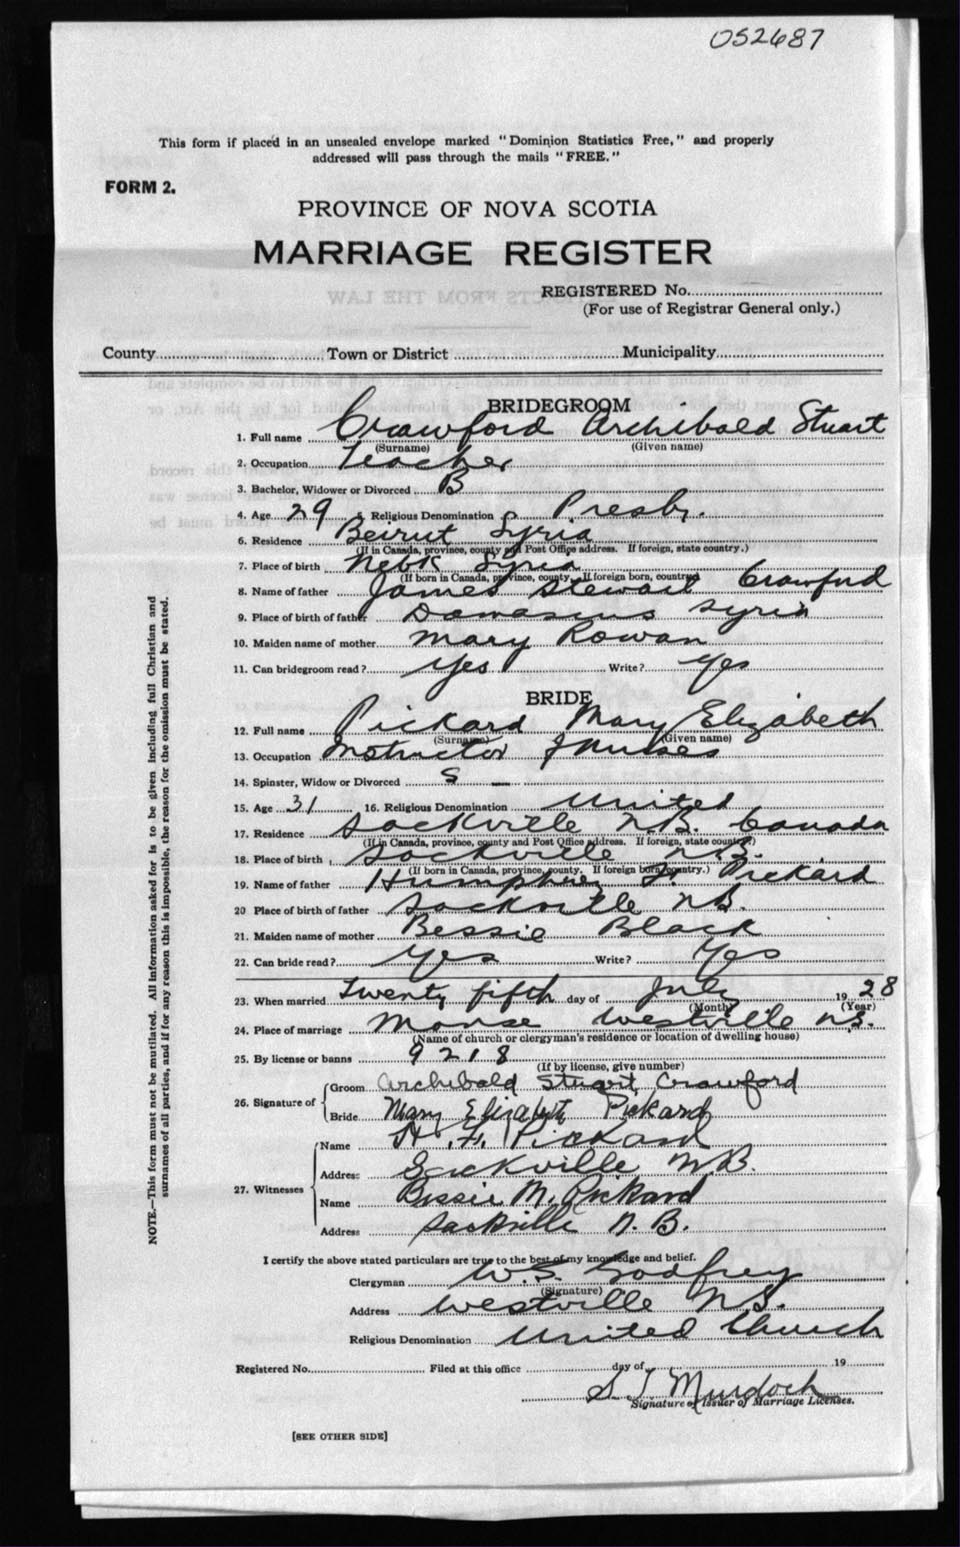 052687
This form if placed in an unsealed envelope marked "Dominion Statistics Free," and properly
addressed will pass through the mails "FREE."
FORM 2.
PROVINCE OF NOVA SCOTIA
MARRIAGE REGISTER
REGISTERED No.
(For use of Registrar General only.)
County Town or District Municipality
BRIDEGROOM
1. Full name Crawford Archibald Stuart
(Surname) (Given name)
2. Occupation Teacher
3. Bachelor, Widower or Divorced B
4. Age 29 5. Religious Denomination Presby.
6. Residence Beirut Syria
(If in Canada, province, county and Post Office address. If foreign, state country.)
7. Place of birth Nebk Syria
(If born in Canada, province, county. If foreign born, country)
8. Name of father James Stewart Crawford
9. Place of birth of father Damascus Syria
10. Maiden name of mother Mary Rowan
11. Can bridegroom read? Yes Write? Yes
BRIDE
12. Full name Pickard Mary Elizabeth
(Surname) (Given name)
13. Occupation Instructor f Nurses
14. Spinster, Widow or Divorced S
15. Age 31 16. Religious Denomination United
17. Residence Sackville N.B. Canada
(If in Canada, province, county and Post Office address. If foreign, state country.)
18. Place of birth Sackville N.B.
(If born in Canada, province, county. If foreign born, country.)
19. Name of father Humphrey F. Pickard
20 Place of birth of father Sackville N.B.
21. Maiden name of mother Bessie Black
22. Can bride read? Yes Write? Yes
23. When married Twenty fifth day of July 1928
(Month) (Year)
24. Place of marriage Manse Westville N.S.
(Name of church or clergyman's residence or location of dwelling house)
25. By license or banns 9218
(If by license, give number)
26. Signature of Groom Archibald Stuart Crawford
Bride Mary Elizabeth Pickard
27. Witnesses Name H. F. Pickard
Address Sackville N.B.
Name Bessie M. Pickard
Address Sackville N.B.
I certify the above stated particulars are true to the best of my knowledge and belief.
Clergyman W.S. Godfrey
(Signature)
Address Westville N.S.
Religious Denomination United Church
Registered No. Filed at this office day of 19
S. J. Murdoch
Signature of Issuer of Marriage Licenses.
[SEE OTHER SIDE]
NOTE.—This form must not be mutilated. All information asked for is to be given including full Christian and
surnames of all parties, and if for any reason this is impossible, the reason for the omission must be stated.